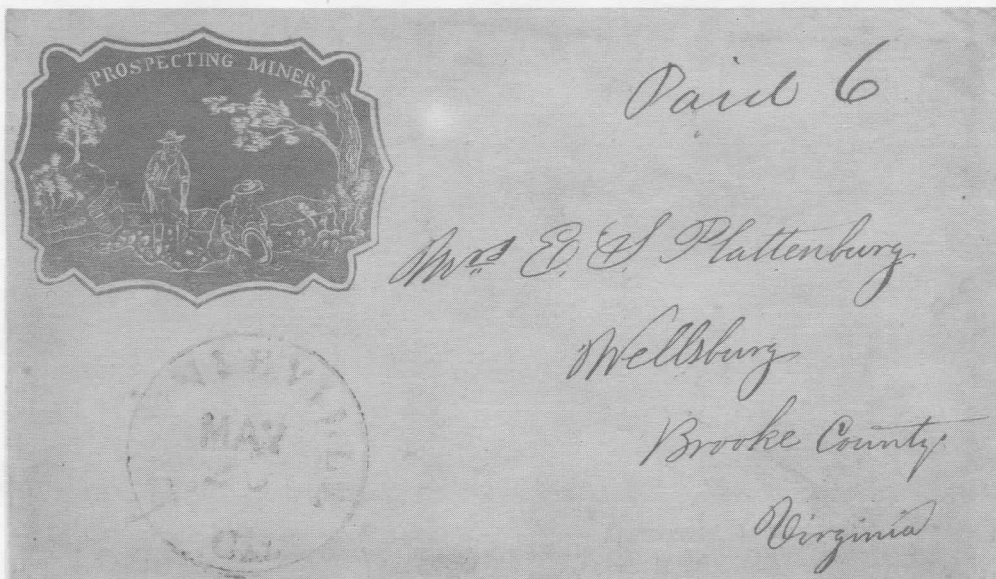 PROSPECTING MINERS
Paid 6
Mrs E. S. Plattenburg
Wellsburg
Brooke County.
Virginia
MAY
Cal